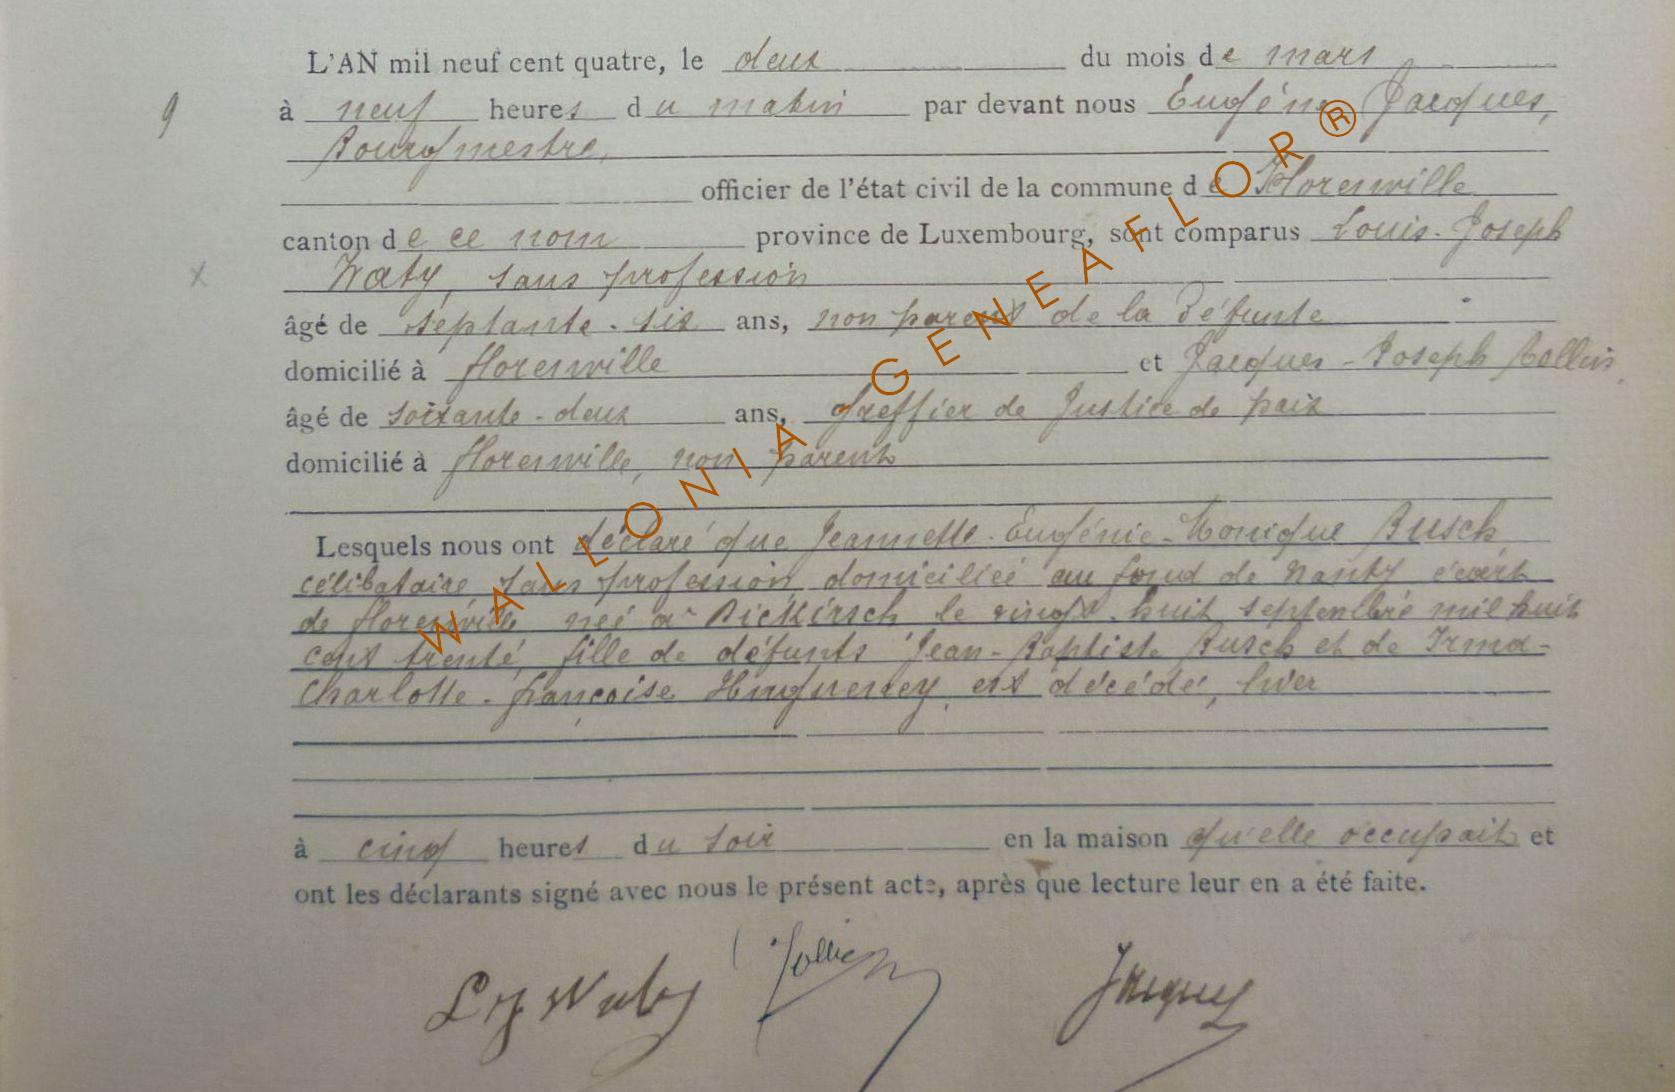 L'AN mil neuf cent quatre, le deux du mois de mars
9 à neuf heures du matin par devant nous Eugène Jacques,
Bourgmestre,
officier de l'état civil de la commune de Florenville
canton de ce nom province de Luxembourg, sont comparus Louis-Joseph
x Waty, sans profession
âgé de septante-six ans, non parent de la Défunte
domicilié à florenville et Jacques-Joseph Collin,
âgé de soixante-deux ans, Greffier de Justice de paix
domicilié à florenville, non parent
Lesquels nous ont déclaré que Jeannette-Eugénie-Monique Busch
célibataire, sans profession, domiciliée au fond de Nanty écart
de florenville née à Dickirsch le vingt-huit septembre mil huit
cent trente, fille de défunts Jean-Baptiste Busch et de Irma-
Charlotte-françoise est décédé, hier
à cinq heures du soir en la maison qu'elle occupait et
ont les déclarants signé avec nous le présent acte, après que lecture leur en a été faite.
Jacques
WALLONIA GENEAFLOR ®